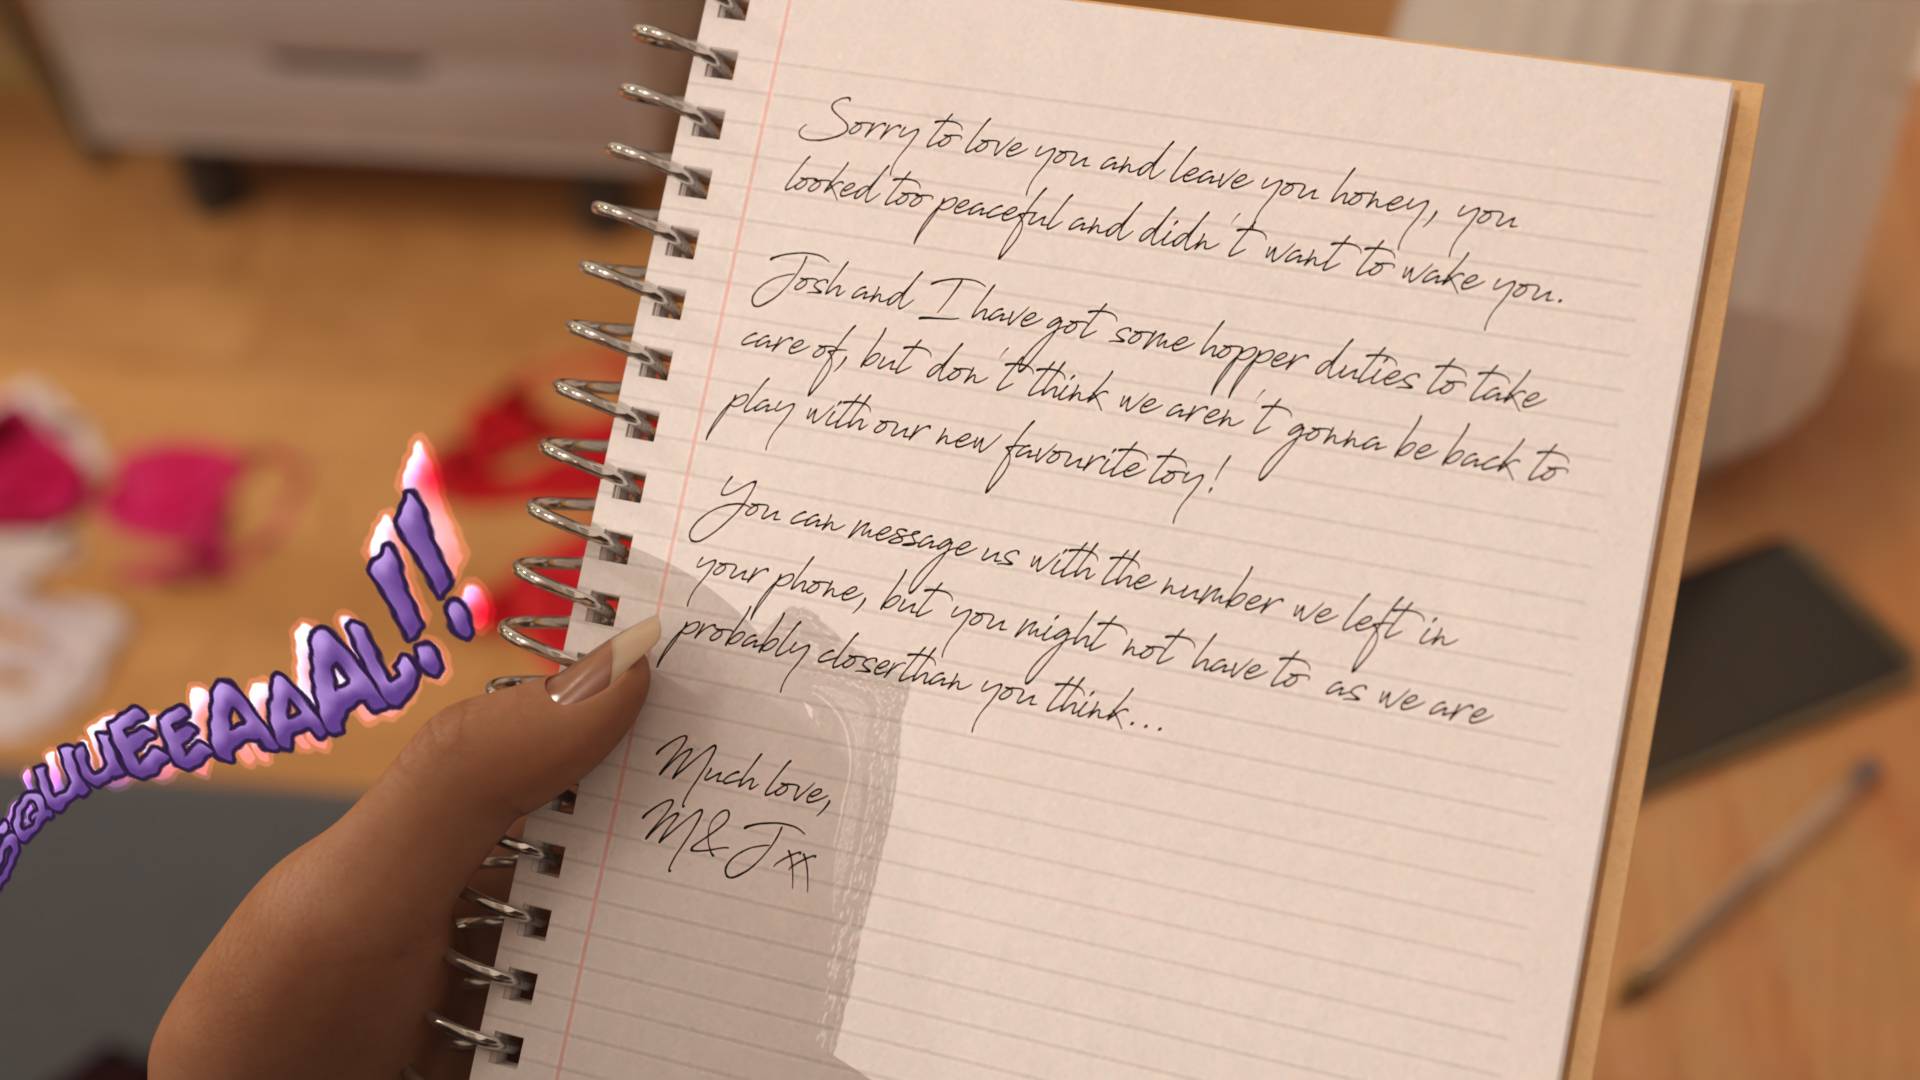 Sorry to love you and leave you honey, you
looked too peaceful and didn't want to wake you.
Josh and I have got some hopper duties to take
care of, but don't think we aren't gonna be back to
play with our new favourite toy!
You can message us with the number we left in
your phone, but you might not have to as we are
probably closer than you think...
Much love,
M & J xx
SQUUUEEEAAAAL!!